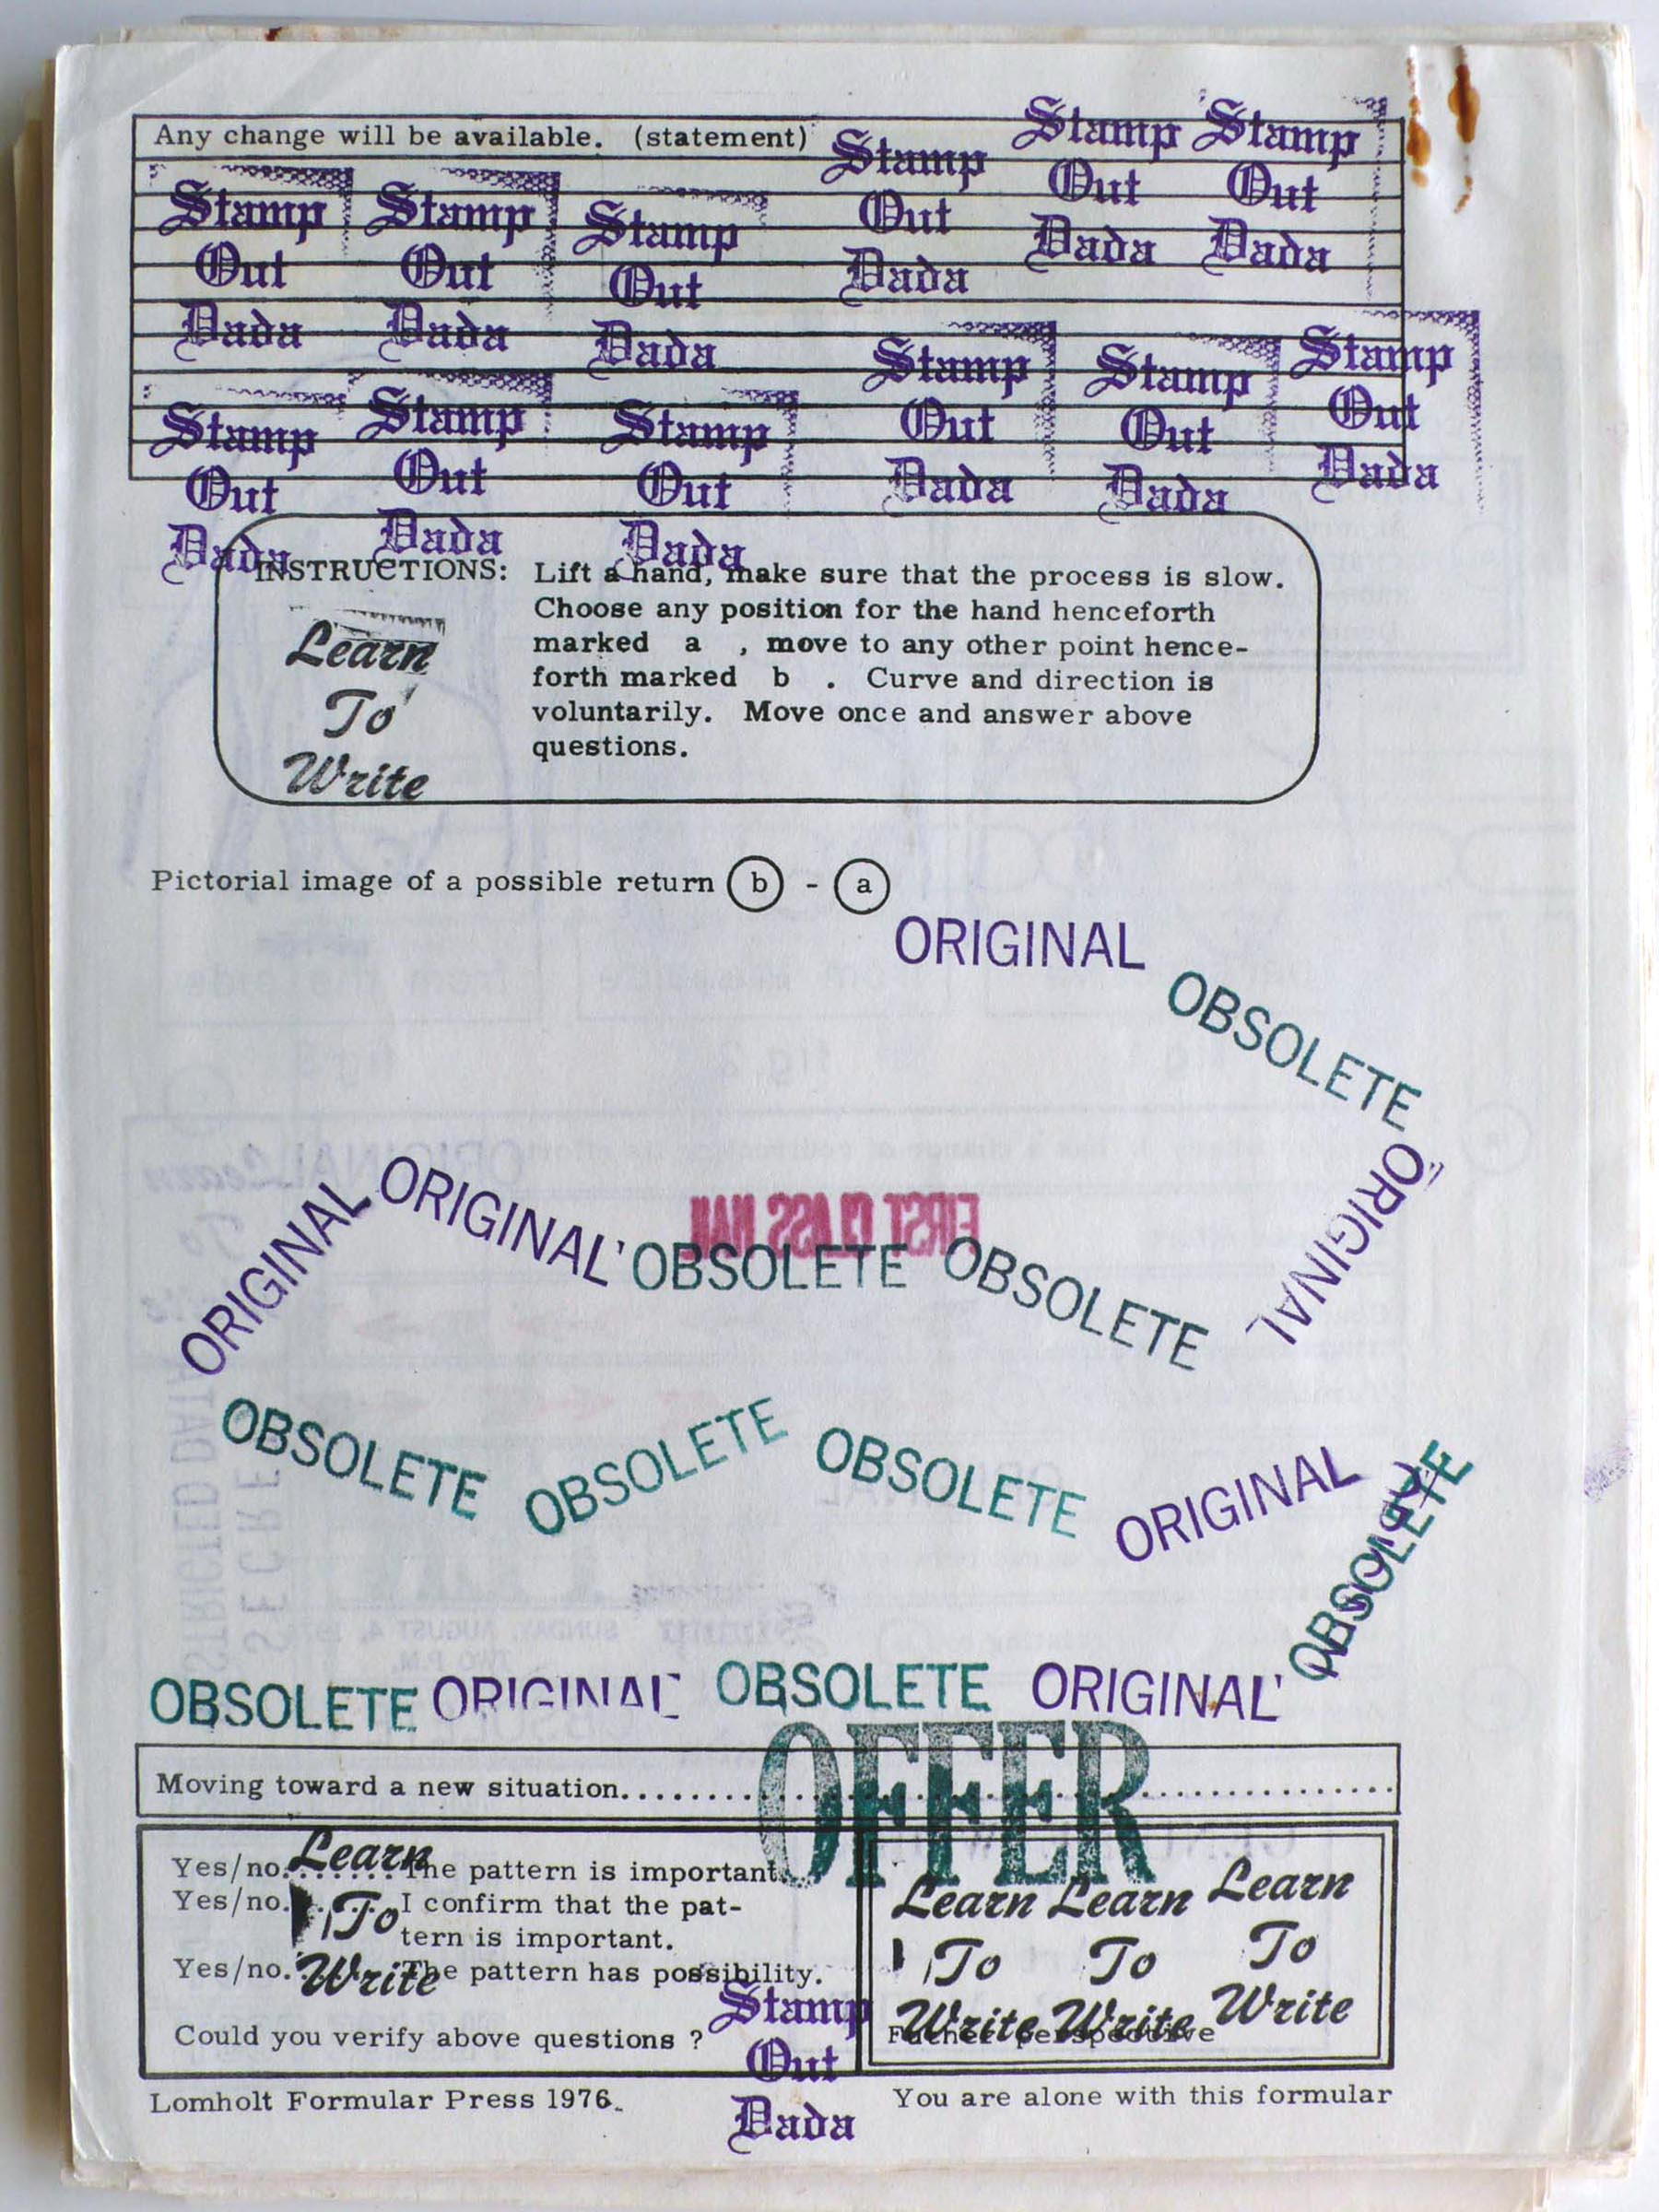 Any change will be available. (statement)
Stamp Stamp Stamp
Out Out Out
Dada Dada Dada
Stamp Stamp Stamp
Out Out Out
Dada Dada Dada
Stamp Stamp Stamp
Out Out Out
Dada Dada Dada
Stamp Stamp Stamp
Out Out Out
Dada Dada Dada
INSTRUCTIONS: Lift a hand, make sure that the process is slow.
Choose any position for the hand henceforth
marked a , move to any other point hence-
forth marked b . Curve and direction is
voluntarily. Move once and answer above
questions.
Learn
To
Write
Pictorial image of a possible return b - a
ORIGINAL
OBSOLETE
ORIGINAL
ORIGINAL ORIGINAL OBSOLETE OBSOLETE
FIRST CLASS MAIL
OBSOLETE OBSOLETE OBSOLETE ORIGINAL
OBSOLETE
OBSOLETE ORIGINAL OBSOLETE ORIGINAL
OFFER
Moving toward a new situation..............................
Yes/no........The pattern is important.
Yes/no........I confirm that the pat-
tern is important.
Yes/no........The pattern has possibility.
Could you verify above questions ?
Learn
To
Write
Stamp
Out
Dada
Learn Learn Learn
To To To
Write Write Write
perspective
Lomholt Formular Press 1976.
You are alone with this formular